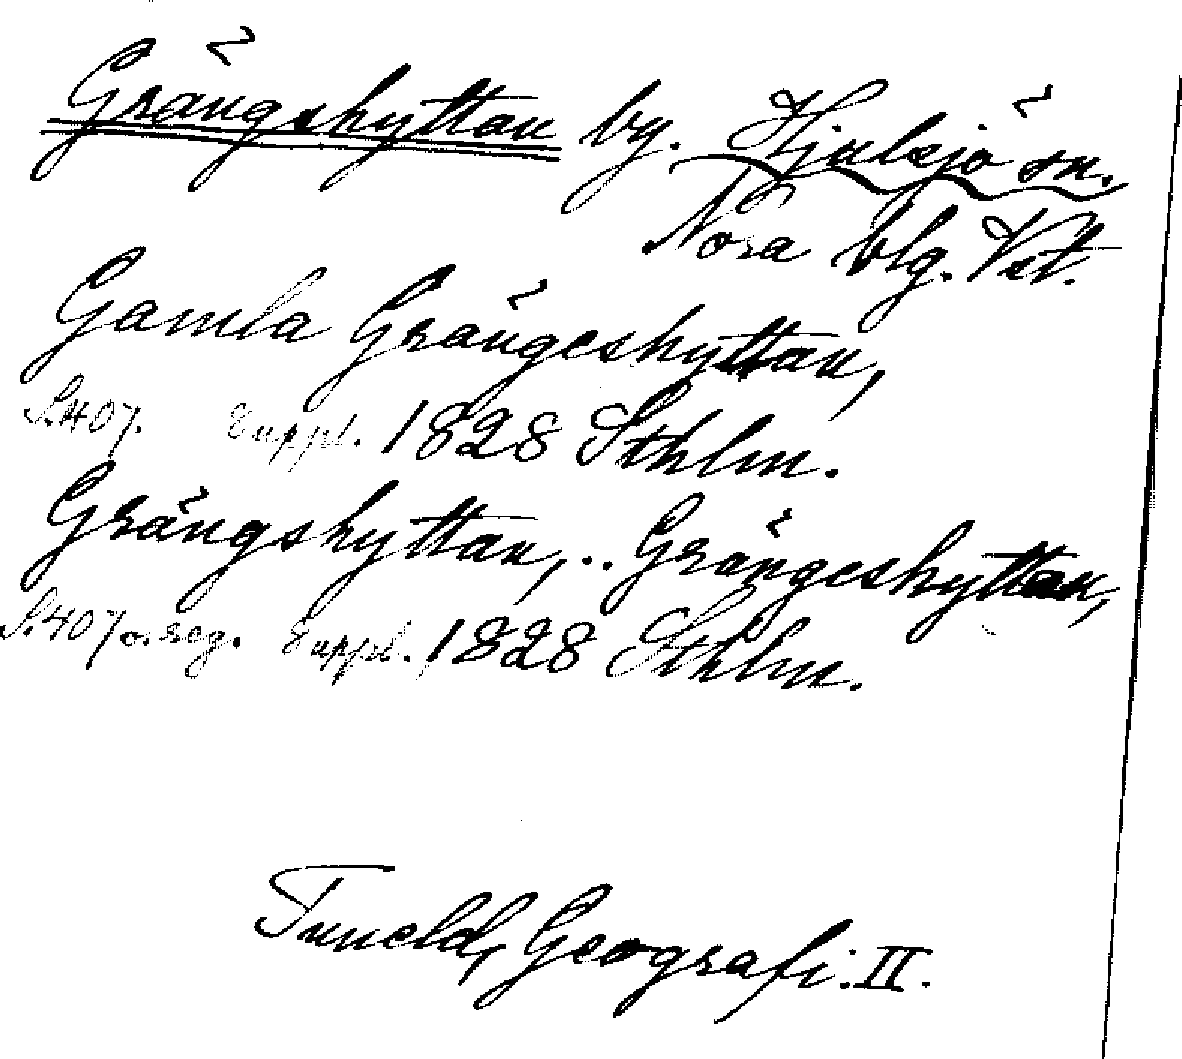 Grängshyttan by. Hjulsjö sn.
Nora blg. Vst.
Gamla Grängeshyttan,
S.407. Suppl. 1828 Sthlm.
Grängshyttan, .. Grängeshyttan,
S.407 o. reg. Suppl. 1828 Sthlm.
Tuneld, Geografi. II.